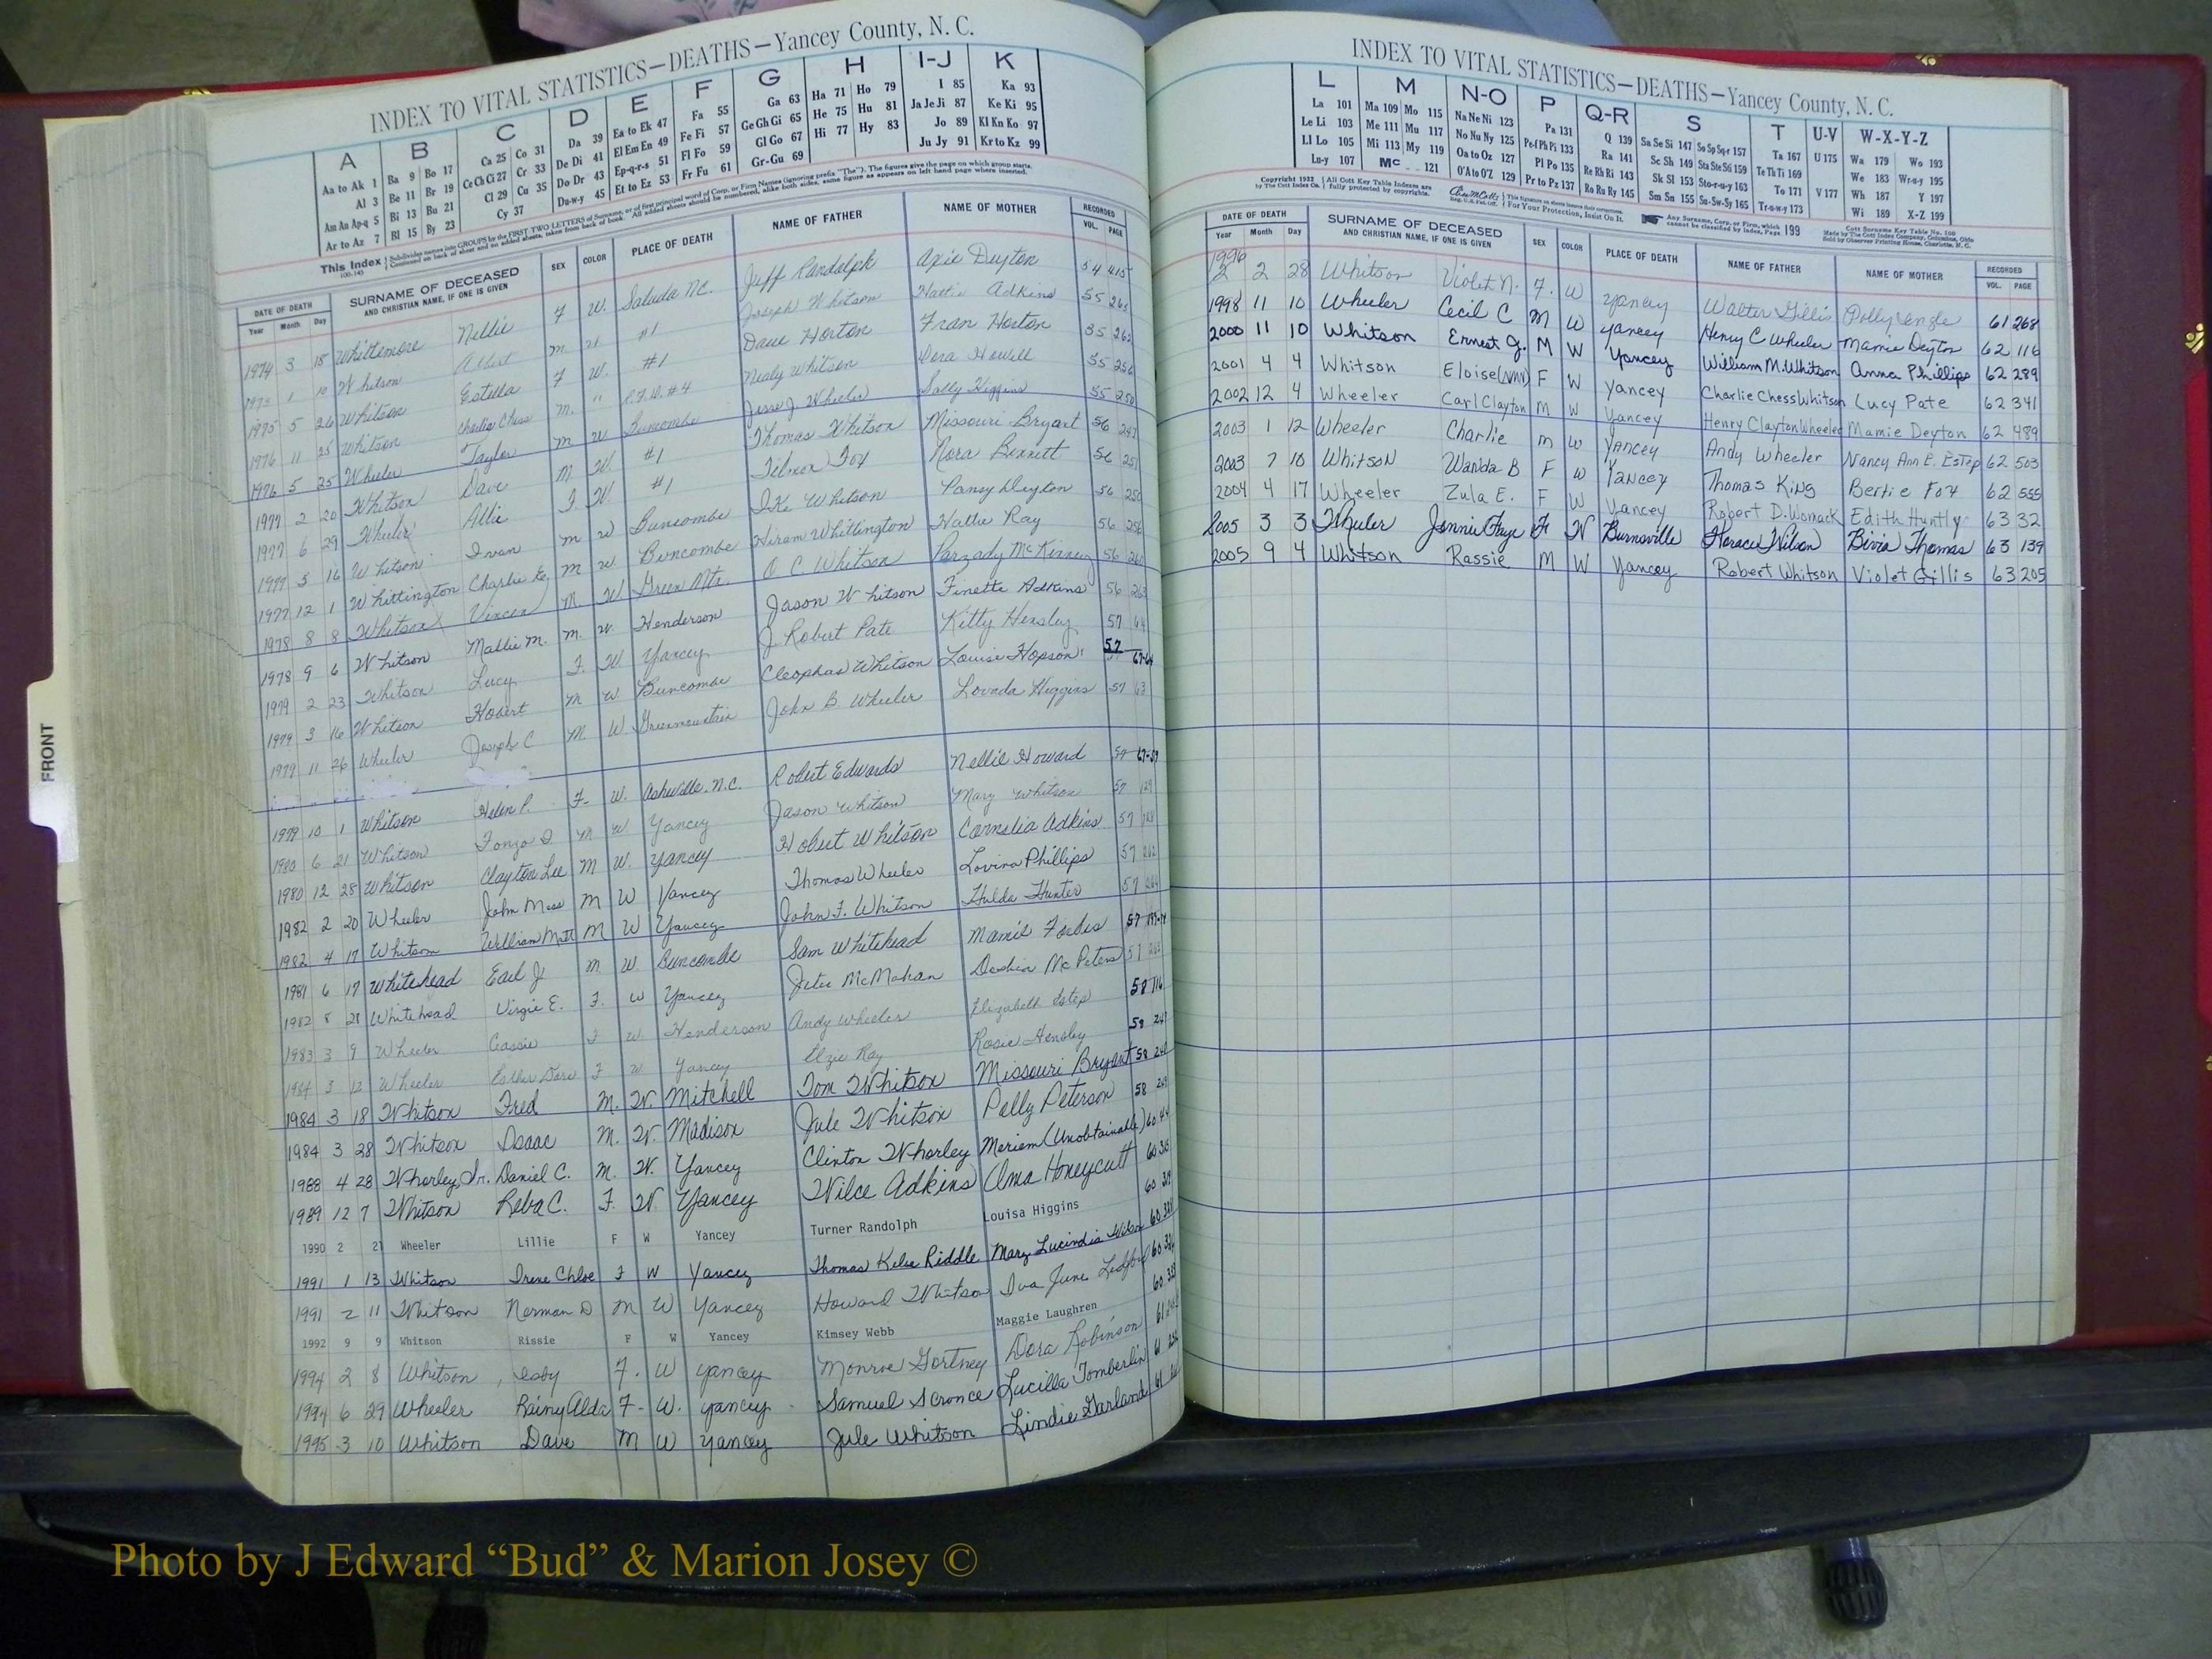 INDEX TO VITAL STATISTICS—DEATHS—Yancey County, N. C.
A B C D E F G H I-J K
Aa to Ak 1 Ba 9 Bo 17 Ca 25 Co 31 Da 39 Ea to Ek 47 Fa 55 Ga 63 Ha 71 Ho 79 I 85 Ka 93
Al 3 Be 11 Br 19 Ce Ch Ci 27 Cr 33 De Di 41 El Em En 49 Fe Fi 57 Ge Gh Gi 65 He 75 Hu 81 Ja Je Ji 87 Ke Ki 95
Am An Ap-q 5 Bi 13 Bu 21 Cl 29 Cu 35 Do Dr 43 Ep-q-r-s 51 Fl Fo 59 Gl Go 67 Hi 77 Hy 83 Jo 89 Kl Kn Ko 97
Ar to Az 7 Bl 15 By 23 Cy 37 Du-w-y 45 Et to Ez 53 Fr Fu 61 Gr-Gu 69 Ju Jy 91 Kr to Kz 99
This Index Subdivides names into GROUPS by the FIRST TWO LETTERS of Surname, or of first principal word of Corp. or Firm Names (ignoring prefix "The"). The figures give the page on which group starts.
DATE OF DEATH SURNAME OF DECEASED SEX COLOR PLACE OF DEATH NAME OF FATHER NAME OF MOTHER RECORDED
Year Month Day AND CHRISTIAN NAME, IF ONE IS GIVEN VOL. PAGE
1974 3 18 Whittemore Nellie F W. Saluda NC. Jeff Randolph Axie Deyton 54 415
10 Whitson Albert M W #1 Joseph Whitson Hattie Adkins 55 265
1975 5 26 Whitson Estella F W. #1 Dave Horton Fran Horton 55 262
1976 11 25 Whitson Charlie Chess M. " R.F.D. #4 Nealy Whitson Dora Howell 55 256
1976 5 25 Wheeler Taylor M W Buncombe Jesse J. Wheeler Sally Higgins 55 258
1977 2 20 Whitson Dave M W. #1 Thomas Whitson Missouri Bryant 56 247
1977 6 29 Wheeler Allie F. W #1 Tilmon Fox Nora Bennett 56 251
1977 5 16 Whitson Ivan M W Buncombe Ike Whitson Pansy Deyton 56 250
1977 12 1 Whittington Charlie M W. Buncombe Hiram Whittington Hattie Ray 56 256
1978 8 8 Whitson Vincen M. W Green Mtn. O. C. Whitson Parzady McKinney 56 260
1978 9 6 Whitson Mallie M. M. W. Henderson Jason Whitson Finette Adkins 56 263
1979 2 23 Whitson Lucy F. W. Yancey J. Robert Pate Kitty Hensley 57 64
1979 3 16 Whitson Hobert M W Buncombe Cleophas Whitson Louise Hopson 57 67-64
1979 11 26 Wheeler Joseph C M. W Greenmountain John B. Wheeler Lovada Higgins 57 63
1979 10 1 Whitson Helen P. F. W. Asheville. N.C. Robert Edwards Nellie Howard 57 67-59
1980 6 21 Whitson Fonzo D M W Yancey Jason Whitson Mary Whitson 57 129
1980 12 28 Whitson Clayton Lee M W. Yancey Hobert Whitson Cornelia Adkins 57 128
1982 2 20 Wheeler John Moss M W Yancey Thomas Wheeler Lovina Phillips 57 262
1982 4 17 Whitson William Matt M W Yancey John F. Whitson Hulda Hunter 57 264
1981 6 17 Whitehead Earl Jr M W. Buncombe Sam Whitehead Mamie Forbes 57 199-74
1982 8 28 Whitehead Virgie E. F. W Yancey Jeter McMahan McPeters 57 263
1983 3 9 Wheeler Cassie F W Henderson Andy Wheeler Elizabeth Estep 58 116
1984 3 12 Wheeler Esther Dare F W Yancey Elzie Ray Rosie Hensley 58 247
1984 3 18 Whitson Fred M. W. Mitchell Tom Whitson Missouri Bryant 58 240
1984 3 28 Whitson Isaac M. W. Madison Jule Whitson Polly Peterson 58 249
1988 4 28 Whorley, Sr. Daniel C. M. W. Yancey Clinton Whorley Meriem (Unobtainable) 60 44
1989 12 7 Whitson Reba C. F. W. Yancey Wilce Adkins Alma Honeycutt 60 305
1990 2 21 Wheeler Lillie F W Yancey Turner Randolph Louisa Higgins 60 319
1991 1 13 Whitson Irene Chloe F W Yancey Thomas Kelse Riddle Mary Lucindia Wilson 60
1991 2 11 Whitson Norman D M W Yancey Howard Whitson Iva June Ledford 60
1992 9 9 Whitson Rissie F W Yancey Kimsey Webb Maggie Laughren 60
1994 2 8 Whitson, Icsby F. W Yancey Monroe Gortney Dora Robinson 61
1994 6 29 Wheeler Rainy Alda F. W. Yancey Samuel Scronce Lucilla Tomberlin 61
1995 3 10 Whitson Dave M W Yancey Jule Whitson Lindie Garland 61
INDEX TO VITAL STATISTICS—DEATHS—Yancey County, N. C.
L M N-O P Q-R S T U-V W-X-Y-Z
La 101 Ma 109 Mo 115 Na Ne Ni 123 Pa 131 Q 139 Sa Se Si 147 So Sp Sq-r 157 Ta 167 U 175 Wa 179 Wo 193
Le Li 103 Me 111 Mu 117 No Nu Ny 125 Pe-f Ph Pi 133 Ra 141 Sc Sh 149 Sta Ste Sti 159 Te Th Ti 169 We 183 Wr-u-y 195
Ll Lo 105 Mi 113 My 119 Oa to Oz 127 Pl Po 135 Re Rh Ri 143 Sk Sl 153 Sto-r-u-y 163 To 171 V 177 Wh 187 Y 197
Lu-y 107 Mc 121 O'A to O'Z 129 Pr to Pz 137 Ro Ru Ry 145 Sm Sn 155 Su-Sw-Sy 165 Tr-u-w-y 173 Wi 189 X-Z 199
Copyright 1932 by The Cott Index Co. All Cott Key Table Indexes are fully protected by copyrights. For Your Protection, Insist On It. Any Surname, Corp. or Firm, which cannot be classified by Index, Page 199
DATE OF DEATH SURNAME OF DECEASED SEX COLOR PLACE OF DEATH NAME OF FATHER NAME OF MOTHER RECORDED
Year Month Day AND CHRISTIAN NAME, IF ONE IS GIVEN VOL. PAGE
1996
2 2 28 Whitson Violet N. F. W Yancey Walter Gillis Polly Engle 61 268
1998 11 10 Wheeler Cecil C M W Yancey Henry C Wheeler Mamie Deyton 62 116
2000 11 10 Whitson Ernest J. M W Yancey William M. Whitson Anna Phillips 62 289
2001 4 4 Whitson Eloise (NMN) F W Yancey Charlie Chess Whitson Lucy Pate 62 341
2002 12 4 Wheeler Carl Clayton M W Yancey Henry Clayton Wheeler Mamie Deyton 62 489
2003 1 12 Wheeler Charlie M W Yancey Andy Wheeler Nancy Ann E. Estep 62 503
2003 7 10 Whitson Wanda B F W Yancey Thomas King Bertie Fox 62 555
2004 4 17 Wheeler Zula E. F W Yancey Robert D. Womack Edith Huntly 63 32
2005 3 3 Wheeler Jennie Faye F W Burnsville Horace Wilson Bivia Thomas 63 139
2005 9 4 Whitson Rassie M W Yancey Robert Whitson Violet Gillis 63 205
FRONT
Photo by J Edward “Bud” & Marion Josey ©